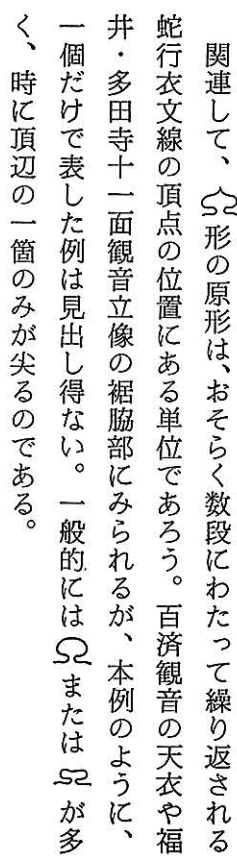 関連して、形の原形は、おそらく数段にわたって繰り返される
蛇行衣文線の頂点の位置にある単位であろう。百済観音の天衣や福
井・多田寺十一面観音立像の裾脇部にみられるが、本例のように、
一個だけで表した例は見出し得ない。一般的にはΩまたはが多
く、時に頂辺の一箇のみが尖るのである。